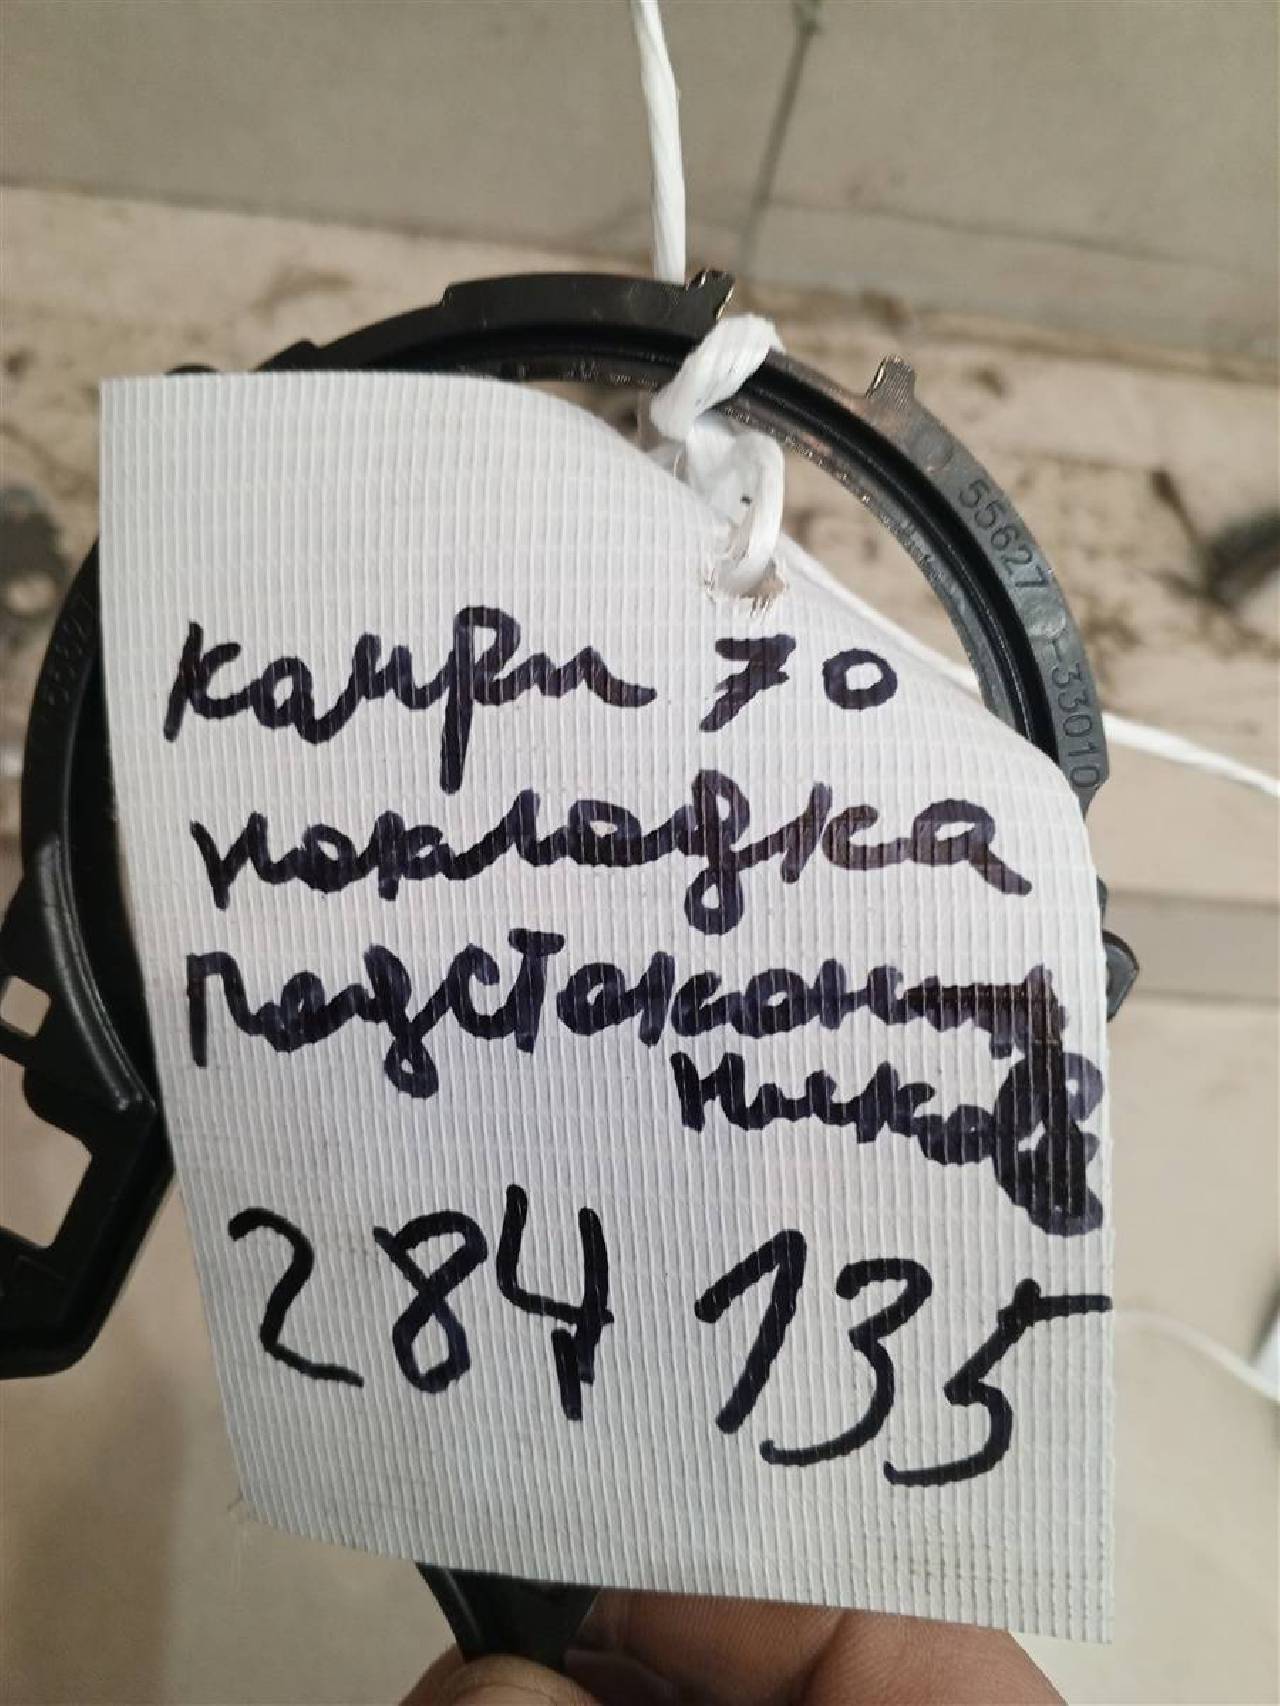 55627-33010
камри 70
накладка
подстакан
ников
284135